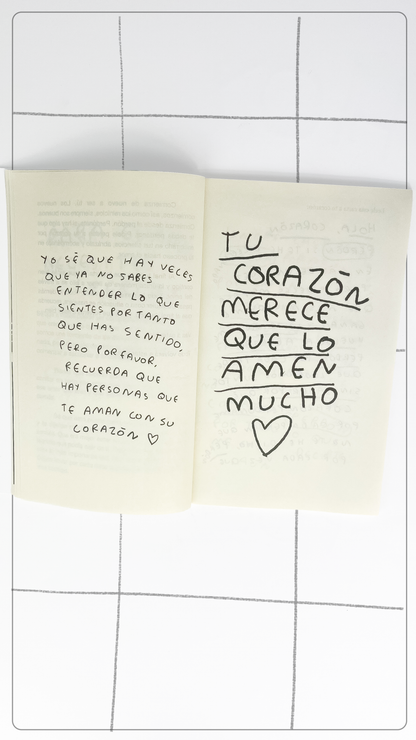 YO SÉ QUE HAY VECES
QUE YA NO SABES
ENTENDER LO QUE
SIENTES POR TANTO
QUE HAS SENTIDO,
PERO PORFAVOR,
RECUERDA QUE
HAY PERSONAS QUE
TE AMAN CON SU
CORAZÓN ♡
TU
CORAZÓN
MERECE
QUE LO
AMEN
MUCHO
♡